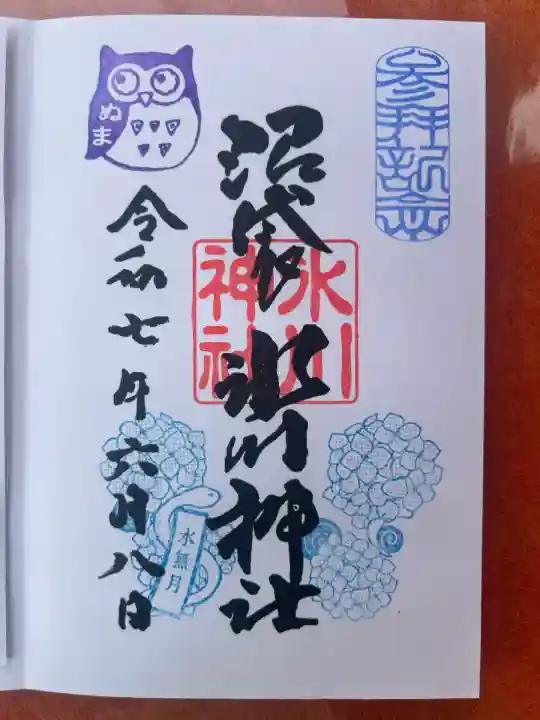 参拝記念
沼袋 氷川神社
氷川
神社
ぬま
令和七年六月八日
水無月